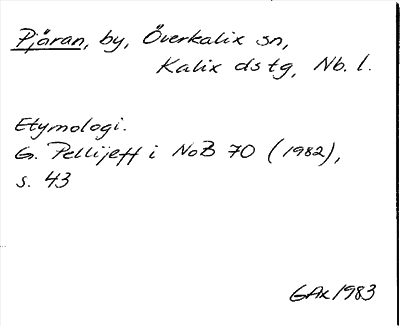 Pjäran, by, Överkalix sn,
Kalix dstg, Nb. l.
Etymologi.
G. Pellijeff i NoB 70 (1982),
s. 43
GAx 1983